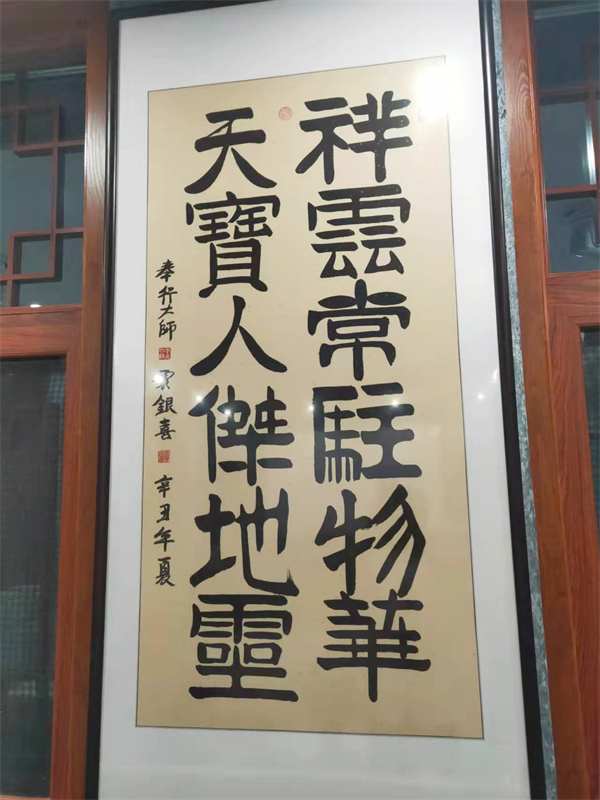 祥雲常駐物華
天寶人傑地靈
奉行大師
銀喜
辛丑年夏